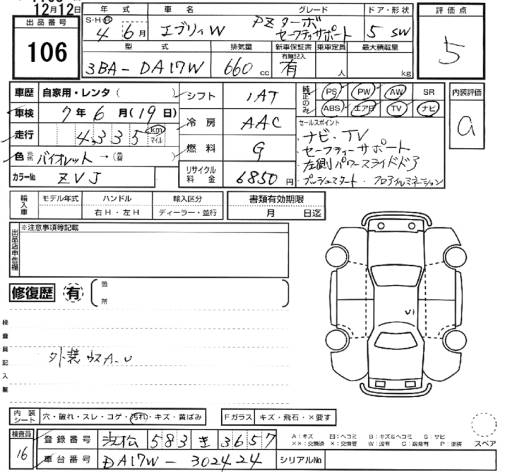 12月12日
出品番号 年式 車名 グレード ドア・形状 評価点
106
S・H・R 4年 6月 エブリィW PZターボ セーフティサポート 5 SW
5
型式 排気量 新車保証書 乗車定員 最大積載量
有無記入
3BA-DA17W 660cc 有 人 kg
車歴 自家用・レンタ( ) シフト IAT 純正のみ PS PW AW SR 内装評価
車検 7年6月(19日) 冷房 AAC ABS エアB TV ナビ
走行 4,335 km マイル 燃料 G
色 バイオレット→
カラーNo. ZVJ リサイクル料金 6850円
セールスポイント
ナビ・TV
セーフティーサポート
左側パワースライドドア
プッシュスタート・
輸入車 モデル年式 ハンドル 輸入区分 書類有効期限
右H・左H ディーラー・並行 月 日迄
※注意事項等記載
修復歴 有 箇所
検査員記入欄
外装 ウスA・U
U1
内装シート 穴・破れ・スレ・コゲ・汚れ・キズ・黄ばみ Fガラス キズ・飛石・×要す
検査員 16
登録番号 浜松 583 き 3657
A:キズ U:ヘコミ B:キズ&ヘコミ S:サビ
スペア
車台番号 DA17W-302424 シリアルNo.